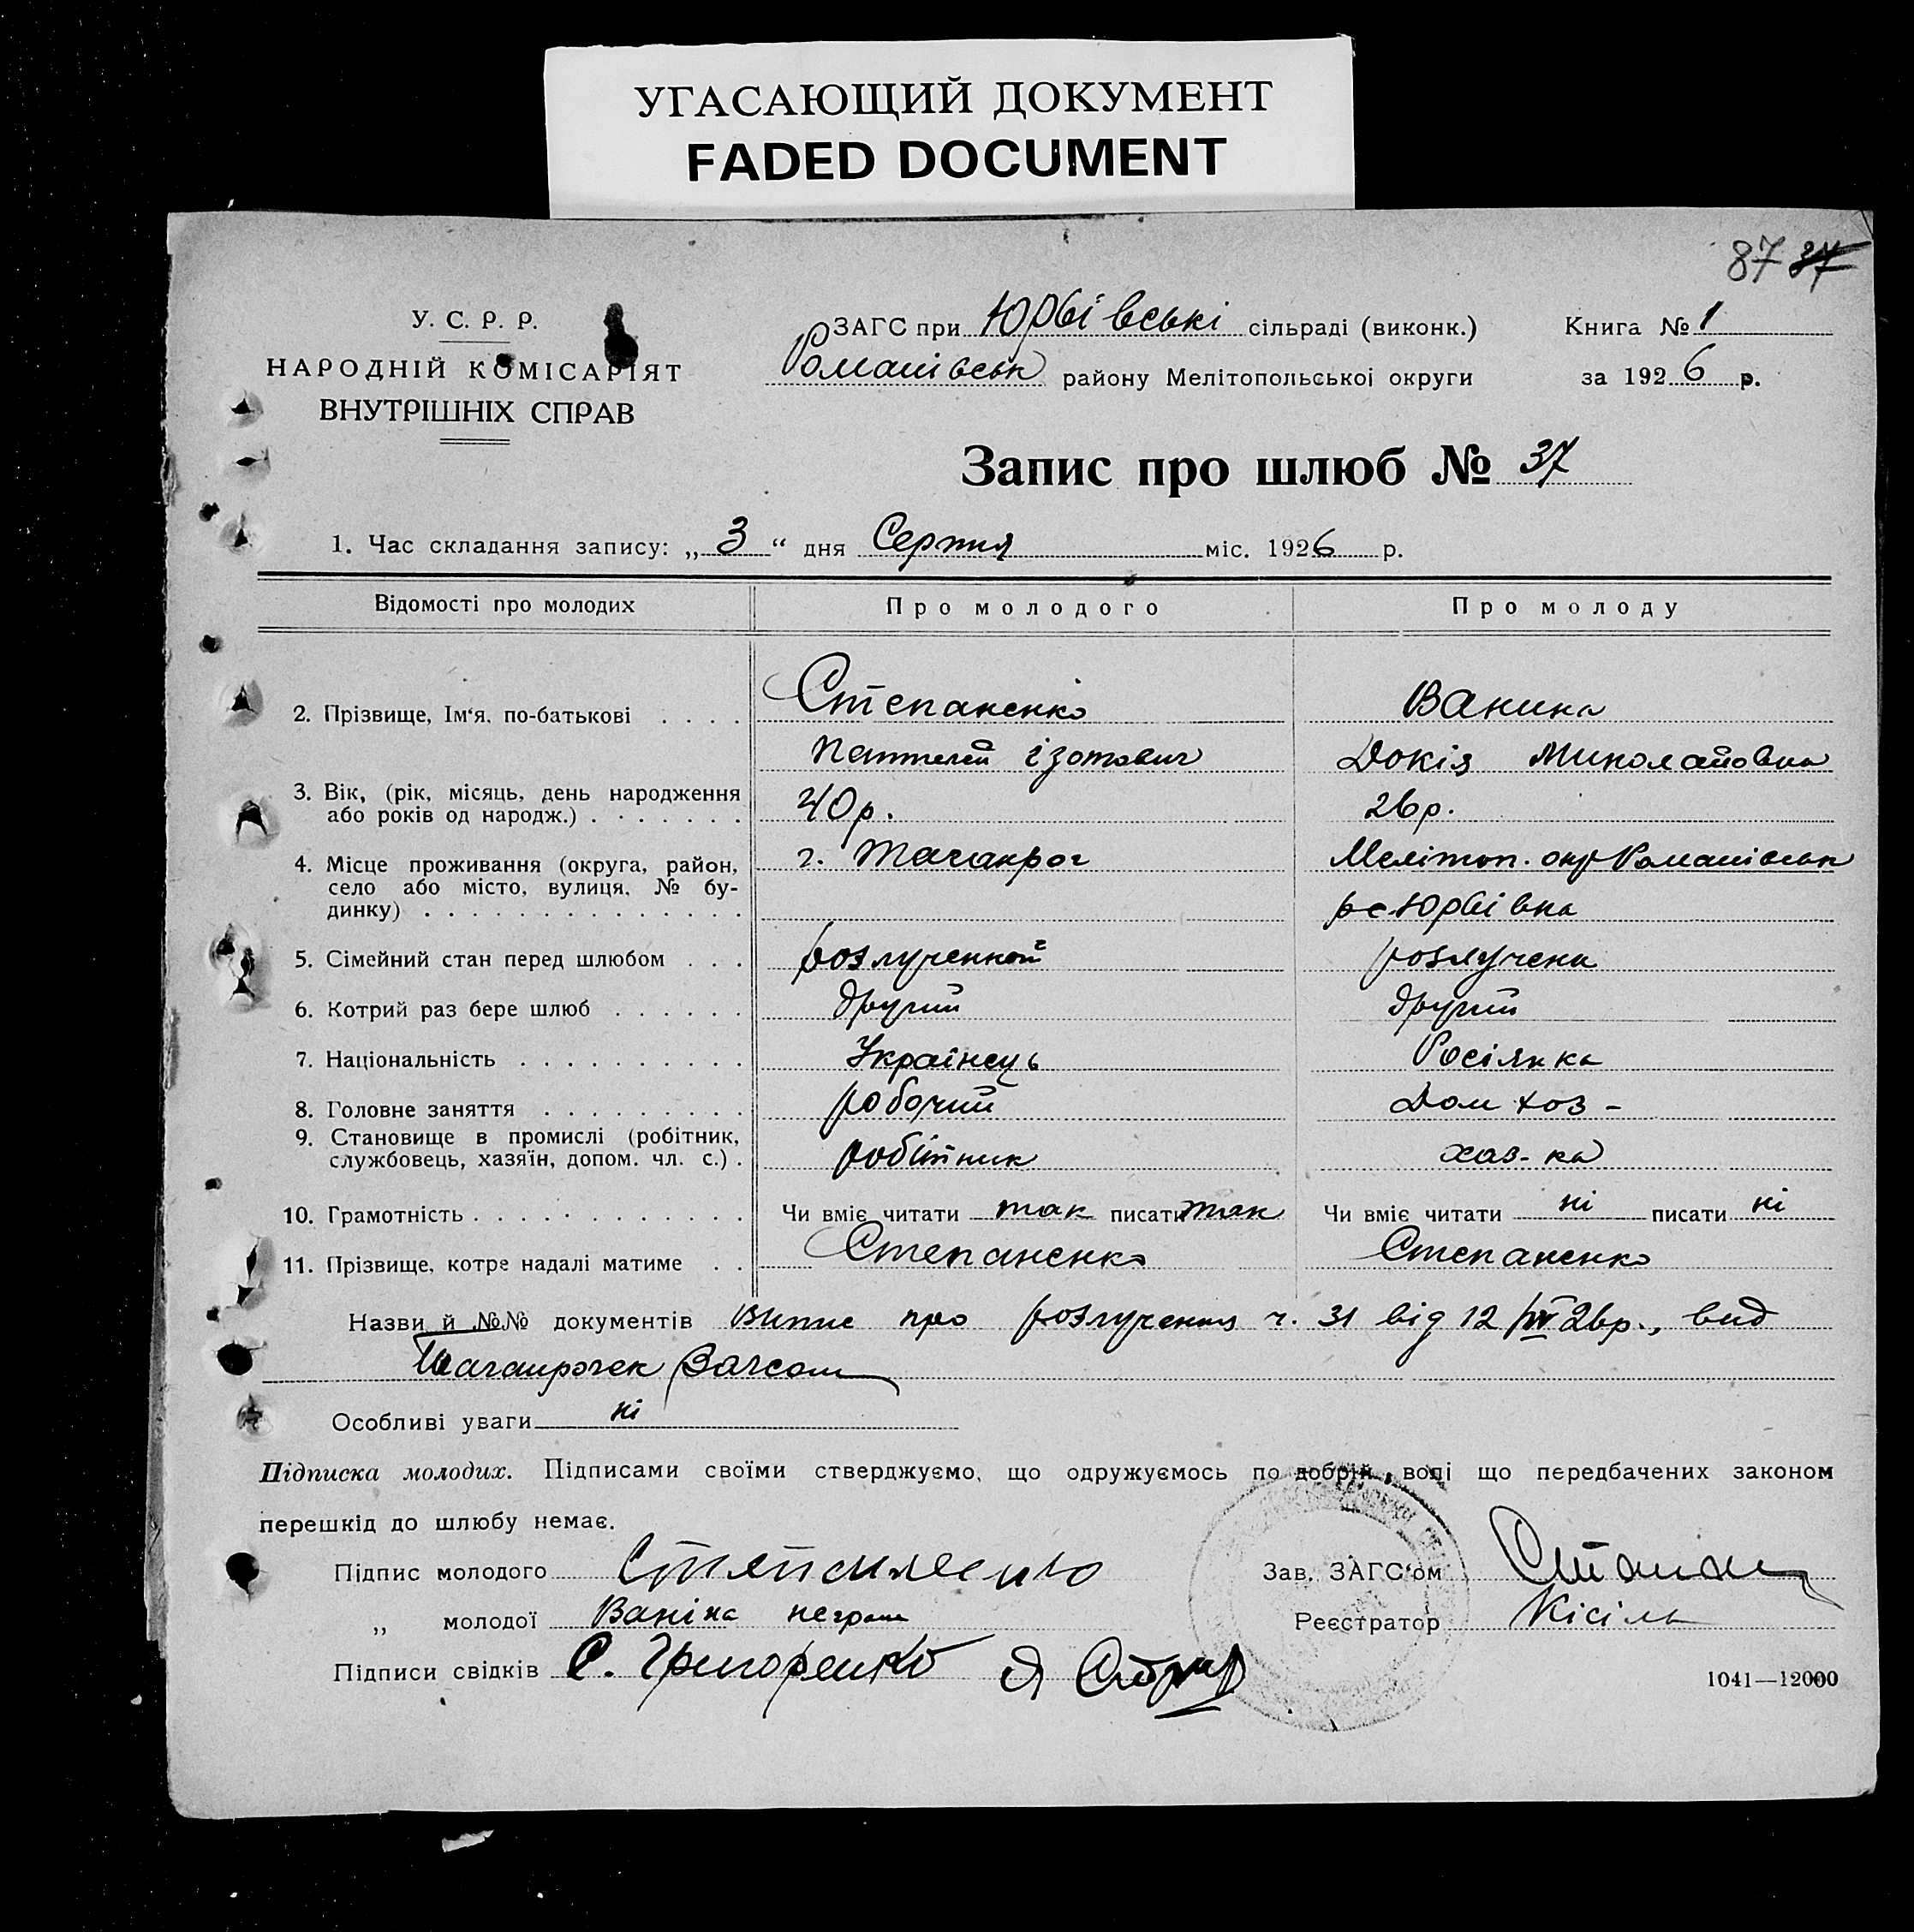 УГАСАЮЩИЙ ДОКУМЕНТ
FADED DOCUMENT
87 37
У. С. Р. Р.
НАРОДНІЙ КОМІСАРІЯТ
ВНУТРІШНІХ СПРАВ
ЗАГС при Юрбівські сільраді (виконк.)
Романівськ району Мелітопольської округи
Книга № 1
за 1926 р.
Запис про шлюб № 37
1. Час складання запису: „3“ дня Серпня міс. 1926 р.
Відомості про молодих
Про молодого
Про молоду
2. Прізвище, Ім‘я, по-батькові . . . .
Степаненко
Ванина
Пантелей ізотович
Докія Миколайовна
3. Вік, (рік, місяць, день народження
або років од народж.) . . . . . . .
40р.
26р.
4. Місце проживання (округа, район,
село або місто, вулиця, № бу-
динку) . . . . . . . . . . . . . .
г. Таганрог
Меліт��п. окр Романівськ
р с. Юрбівка
5. Сімейний стан перед шлюбом . . .
розлученной
розлучена
6. Котрий раз бере шлюб . . . . . .
другий
другий
7. Національність . . . . . . . . . .
Українець
Росіянка
8. Головне заняття . . . . . . . . .
робочий
Дом хоз -
9. Становище в промислі (робітник,
службовець, хазяїн, допом. чл. с.) .
робітник
хаз-ка
10. Грамотність . . . . . . . . . . . .
Чи вміє читати так писати так
Чи вміє читати ні писати ні
11. Прізвище, котре надалі матиме . .
Степаненко
Степаненко
Назви й №№ документів Витяг про розлучення ч. 31 від 12 26р., вид
Таганрогск Загсом
Особливі уваги ні
Підписка молодих. Підписами своїми стверджуємо, що одружуємось по добрій волі що передбачених законом
перешкід до шлюбу немає.
Підпис молодого Степаненко
Зав. ЗАГС‘ом
„ молодої Ваніна неграм
Реєстратор Кісіль
Підписи свідків С. Григоренко Я
1041—12000